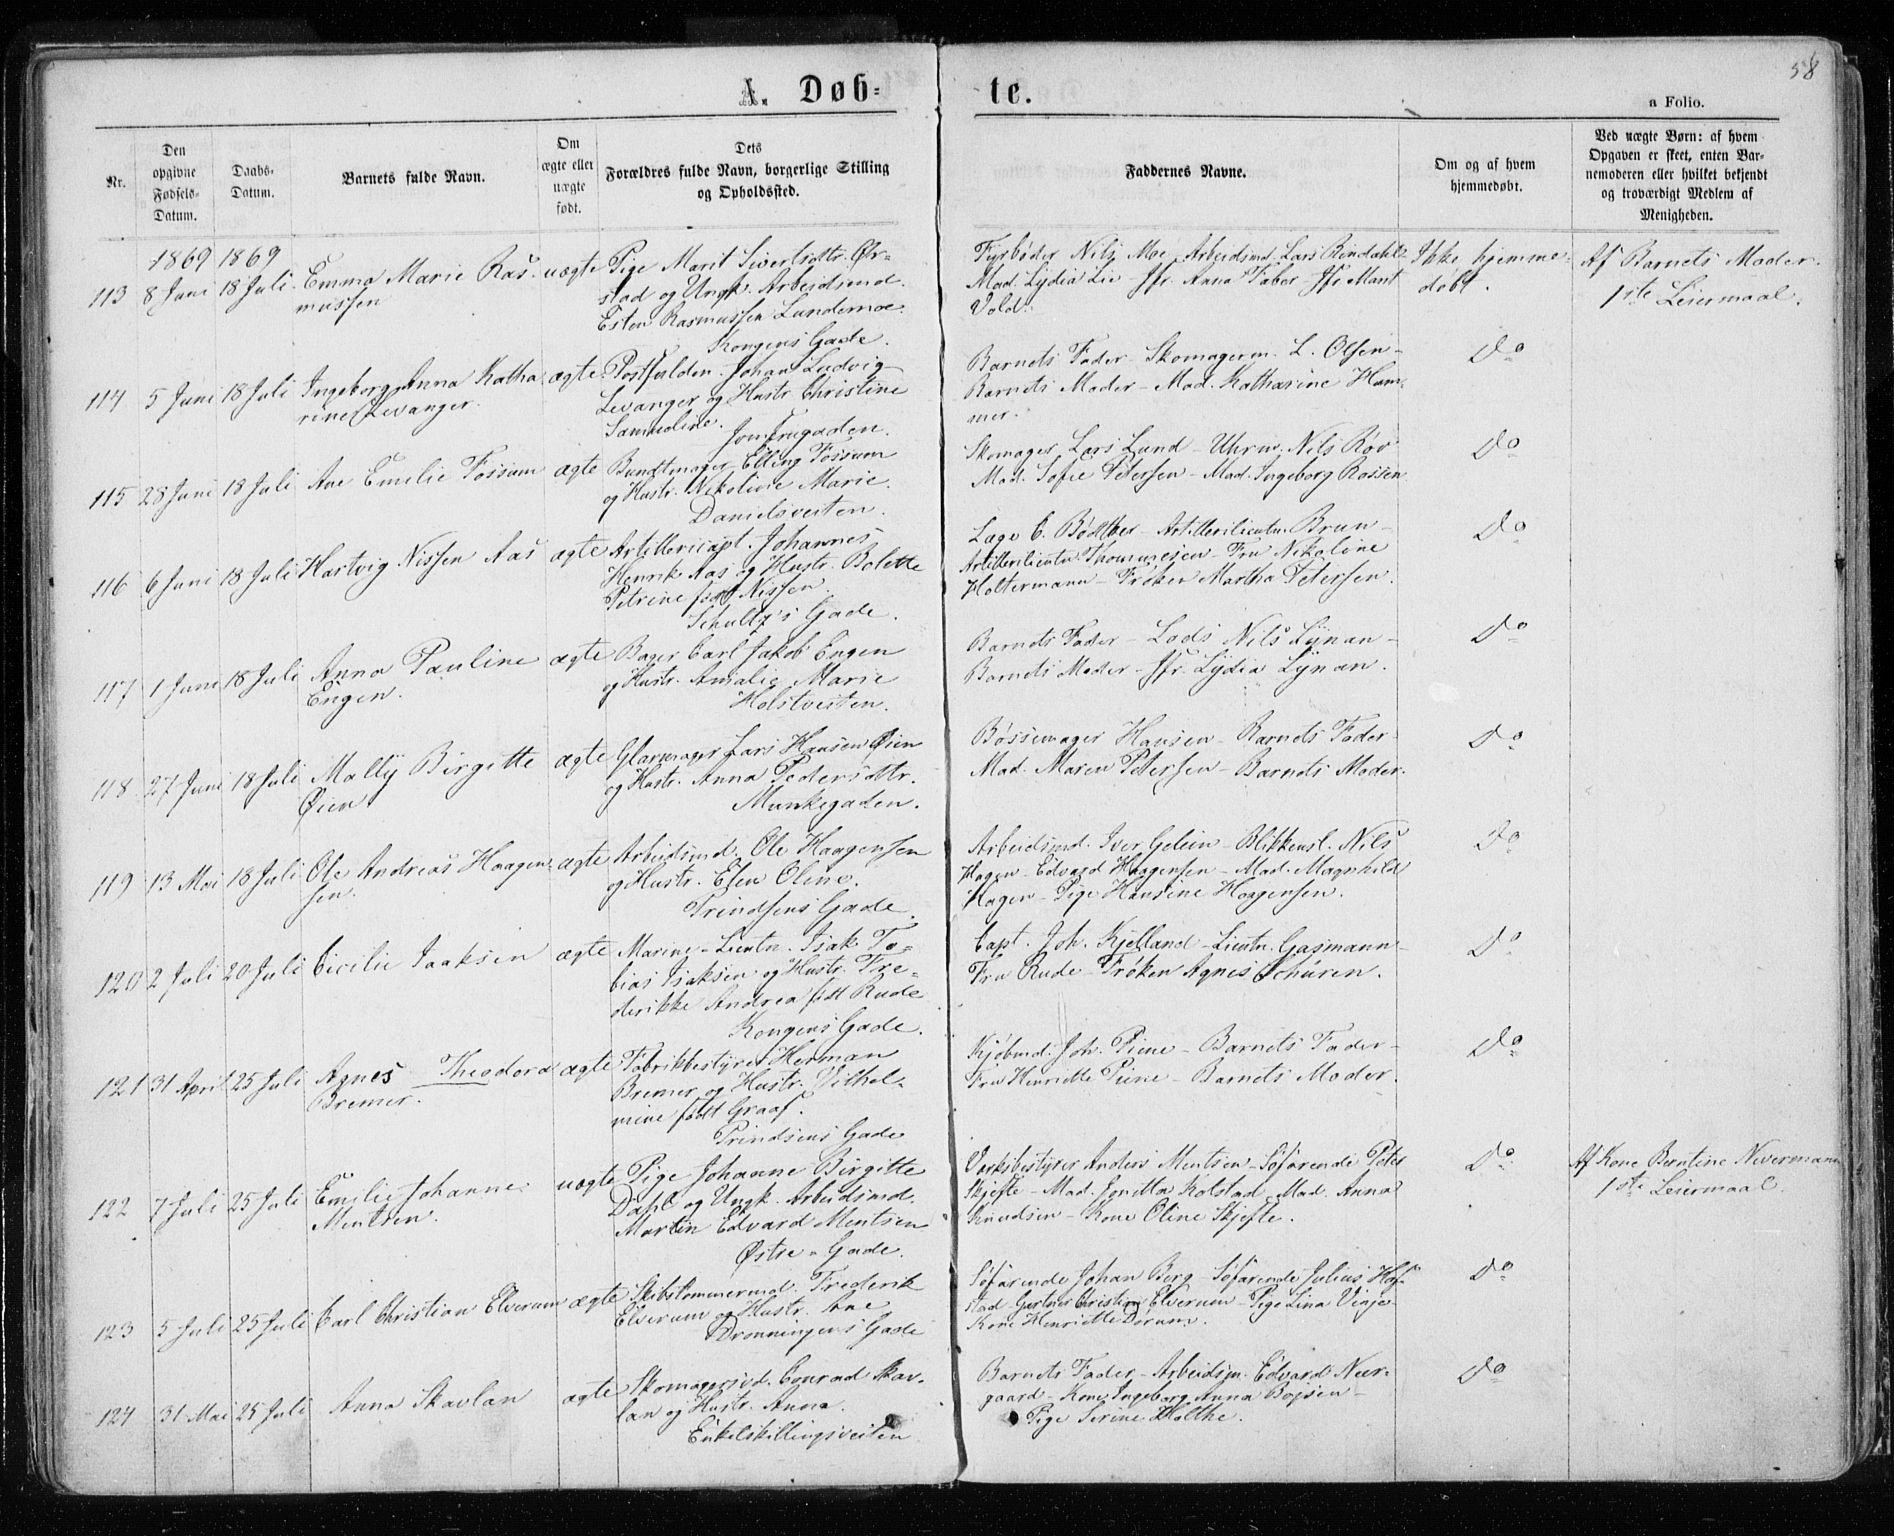 58
A. Døb- te.
a Folio.
Nr.
Den opgivne Fødsels-Datum.
Daabs-Datum.
Barnets fulde Navn.
Om ægte eller uægte født.
Dets Forældres fulde Navn, borgerlige Stilling og Opholdssted.
Faddernes Navne.
Om og af hvem hjemmedøbt.
Ved uægte Børn: af hvem Opgaven er skeet, enten Barnemoderen eller hvilket bekjendt og troværdigt Medlem af Menigheden.
1869 1869
113 8 Juni 18 Juli Emma Marie Ras-
mussen
uægte
Pige Marit Sivertsdttr. Ør-
stad og Ungk. Arbeidsmd.
Esten Rasmussen Lundemoe.
Kongens Gade.
Fyrbøder Nils Moe Arbeidsmd. Lars Rindahl-
Mad. Lydia Lie Jfr. Anna Faber Jfr. Marit
Vold.
Ikke hjemme-
døbt.
Af Barnets Moder.
1ste Leiermaal.
114 5 Juni 18 Juli Ingeborg Anna Katha-
rine Levanger.
ægte
Postfulden. Johan Ludvig
Levanger og Hustr. Christine
Samueline.
Jomfrugaden.
Barnets Fader - Skomagerm. L. Olsen -
Barnets Moder - Mad. Katharine Ham-
mer.
Do
115 28 Juni 18 Juli Ane Emilie Fossum ægte
Bundtmager Elling Fossum
og Hustr. Nikoline Marie.
Danielsveiten.
Skomager Lars Lund - Uhrm. Nils Røv
Mad. Sofie Petersen - Mad. Ingeborg Rossen
Do
116 6 Juni 18 Juli Hartvig Nissen Aas ægte
Artillericapt. Johannes
Henrik Aas og Hustr. Bolette
Petrine født Nissen.
Schultz's Gade.
Læge C. Bødtker - Artillerilieutn. Brun -
Artillerilieutn. Thommesen - Fru Nikoline
Holtermann - Frøken Martha Petersen.
Do
117 1 Juni 18 Juli Anna Pauline
Engen.
ægte
Bager Carl Jakob Engen
og Hustr. Amalie Marie
Holstveiten.
Barnets Fader - Lods Nils Lynan -
Barnets Moder - Jfr. Lydia Lynan.
Do
118 27 Juni 18 Juli Mally Birgitte
Øien
ægte
Glarmager Lars Hansen Øien
og Hustr. Anna Pedersdttr.
Munkegaden.
Bøssemager Hansen - Barnets Fader -
Mad. Maren Petersen - Barnets Moder.
Do
119 13 Mai 18 Juli Ole Andreas Haagen-
sen.
ægte
Arbeidsmd. Ole Haagensen
og Hustr. Elen Oline.
Prindsens Gade.
Arbeidsmd. Iver Gelein - Blikkensl. Nils
Hagen - Edvard Haagensen - Mad. Magnhild
Hagen - Pige Hansine Haagensen.
Do
120 2 Juli 20 Juli Cecilie Isaksen ægte
Marine-Lieutn. Isak To-
bias Isaksen og Hustr. Fre-
derikke Andrea født Rude
Kongens Gade.
Capt. Joh. Kjelland - Lieutn. Gasmann -
Fru Rude - Frøken Agnes Schúren.
Do
121 31 April 25 Juli Agnes Theodora
Bremer.
ægte
Fabrikbestyrer Herman
Bremer og Hustr. Vilhel-
mine født Graaf.
Prindsens Gade
Kjøbmd. Joh. Piene - Barnets Fader -
Fru Henriette Piene - Barnets Moder.
Do
122 7 Juli 25 Juli Emilie Johanne
Mentsen.
uægte
Pige Johanne Birgitte
Dahl og Ungk. Arbeidsmd.
Martin Edvard Mentsen
Østre-Gade.
Værksbestyrer Anders Mentsen - Søfarende Peter
Skjefte - Mad. Jonitta Kolstad - Mad. Anna
Knudsen - Kone Oline Skjefte.
Do
Af Kone Berntine Nevermann
1ste Leiermaal.
123 5 Juli 25 Juli Carl Christian Elverum ægte
Skibstømmermd. Frederik
Elverum og Hustr. Ane
Dronningens Gade
Søfarende Johan Berg - Søfarende Julius Hof-
stad - Gartner Christian Elverum - Pige Lina Vinje
Kone Henriette Dorum.
Do
124 31 Mai 25 Juli Anna Skavlan ægte
Skomagersvd. Conrad Skav-
lan og Hustr. Anna.
Enkelskillingsveiten
Barnets Fader - Arbeidsm. Edvard Neer-
gaard - Kone Ingeborg Anna Boysen -
Pige Serine Holthe.
Do